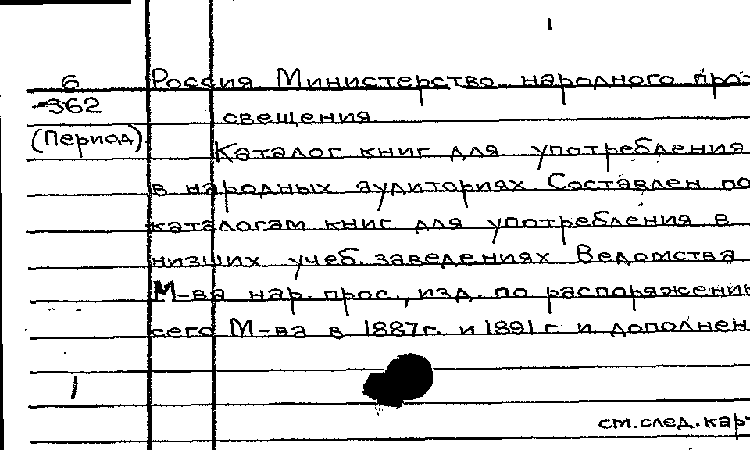 1
6 Россия Министерство народного про-
-362 свещения
(Период) Каталог книг для употребления
в народных аудиториях Составлен по
каталогам книг для употребления в
низших учеб. заведениях Ведомства
М-ва нар. прос., изд. по распоряжению
сего М-ва в 1887г. и 1891г и дополнен
1
ст.след.кар